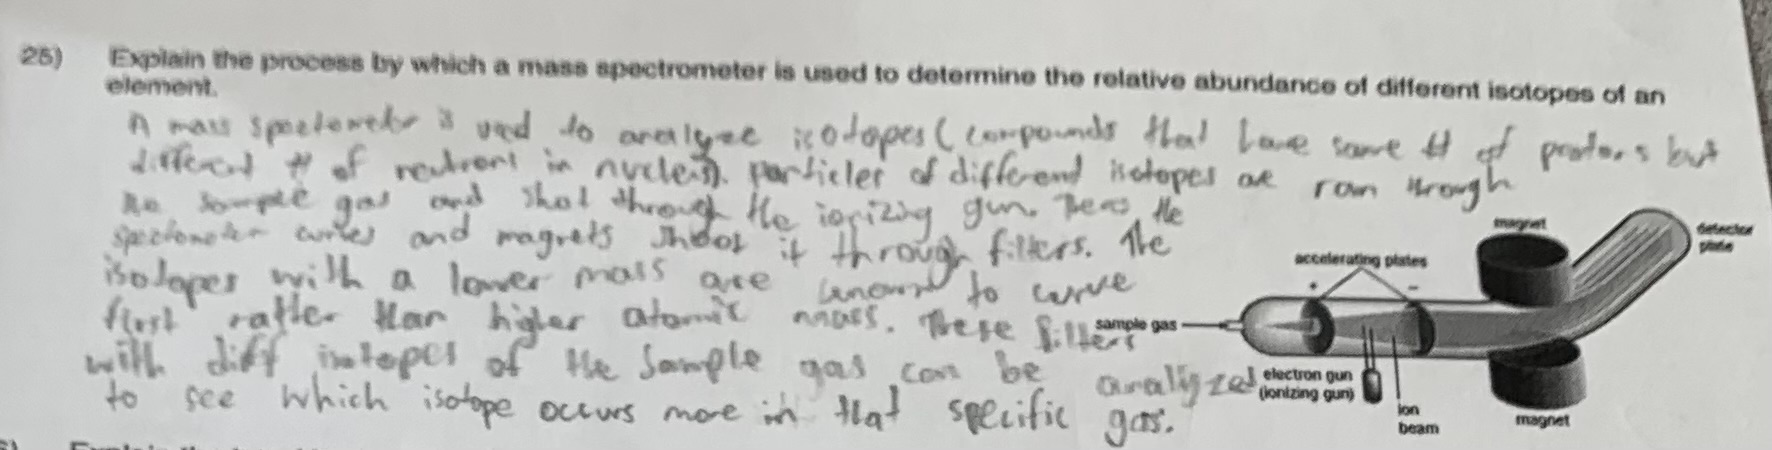 25) Explain the process by which a mass spectrometer is used to determine the relative abundance of different isotopes of an
element.
A mass spectometer is used to analyze isotopes (compounds that have same # of protons but
different # of neutrons in nucleus). particles of different isotopes are ran through
the sample gas and shot through the ionizing gun. the
spectometer curves and magnets shoot it through filters. The
isotopes with a lower mass are known to curve
first rather than higher atomic mass. These filters
with diff isotopes of the sample gas can be analyzed
to see which isotope occurs more in that specific gas.
magnet
detector
plate
accelerating plates
+ -
sample gas
electron gun
(ionizing gun)
ion
beam
magnet